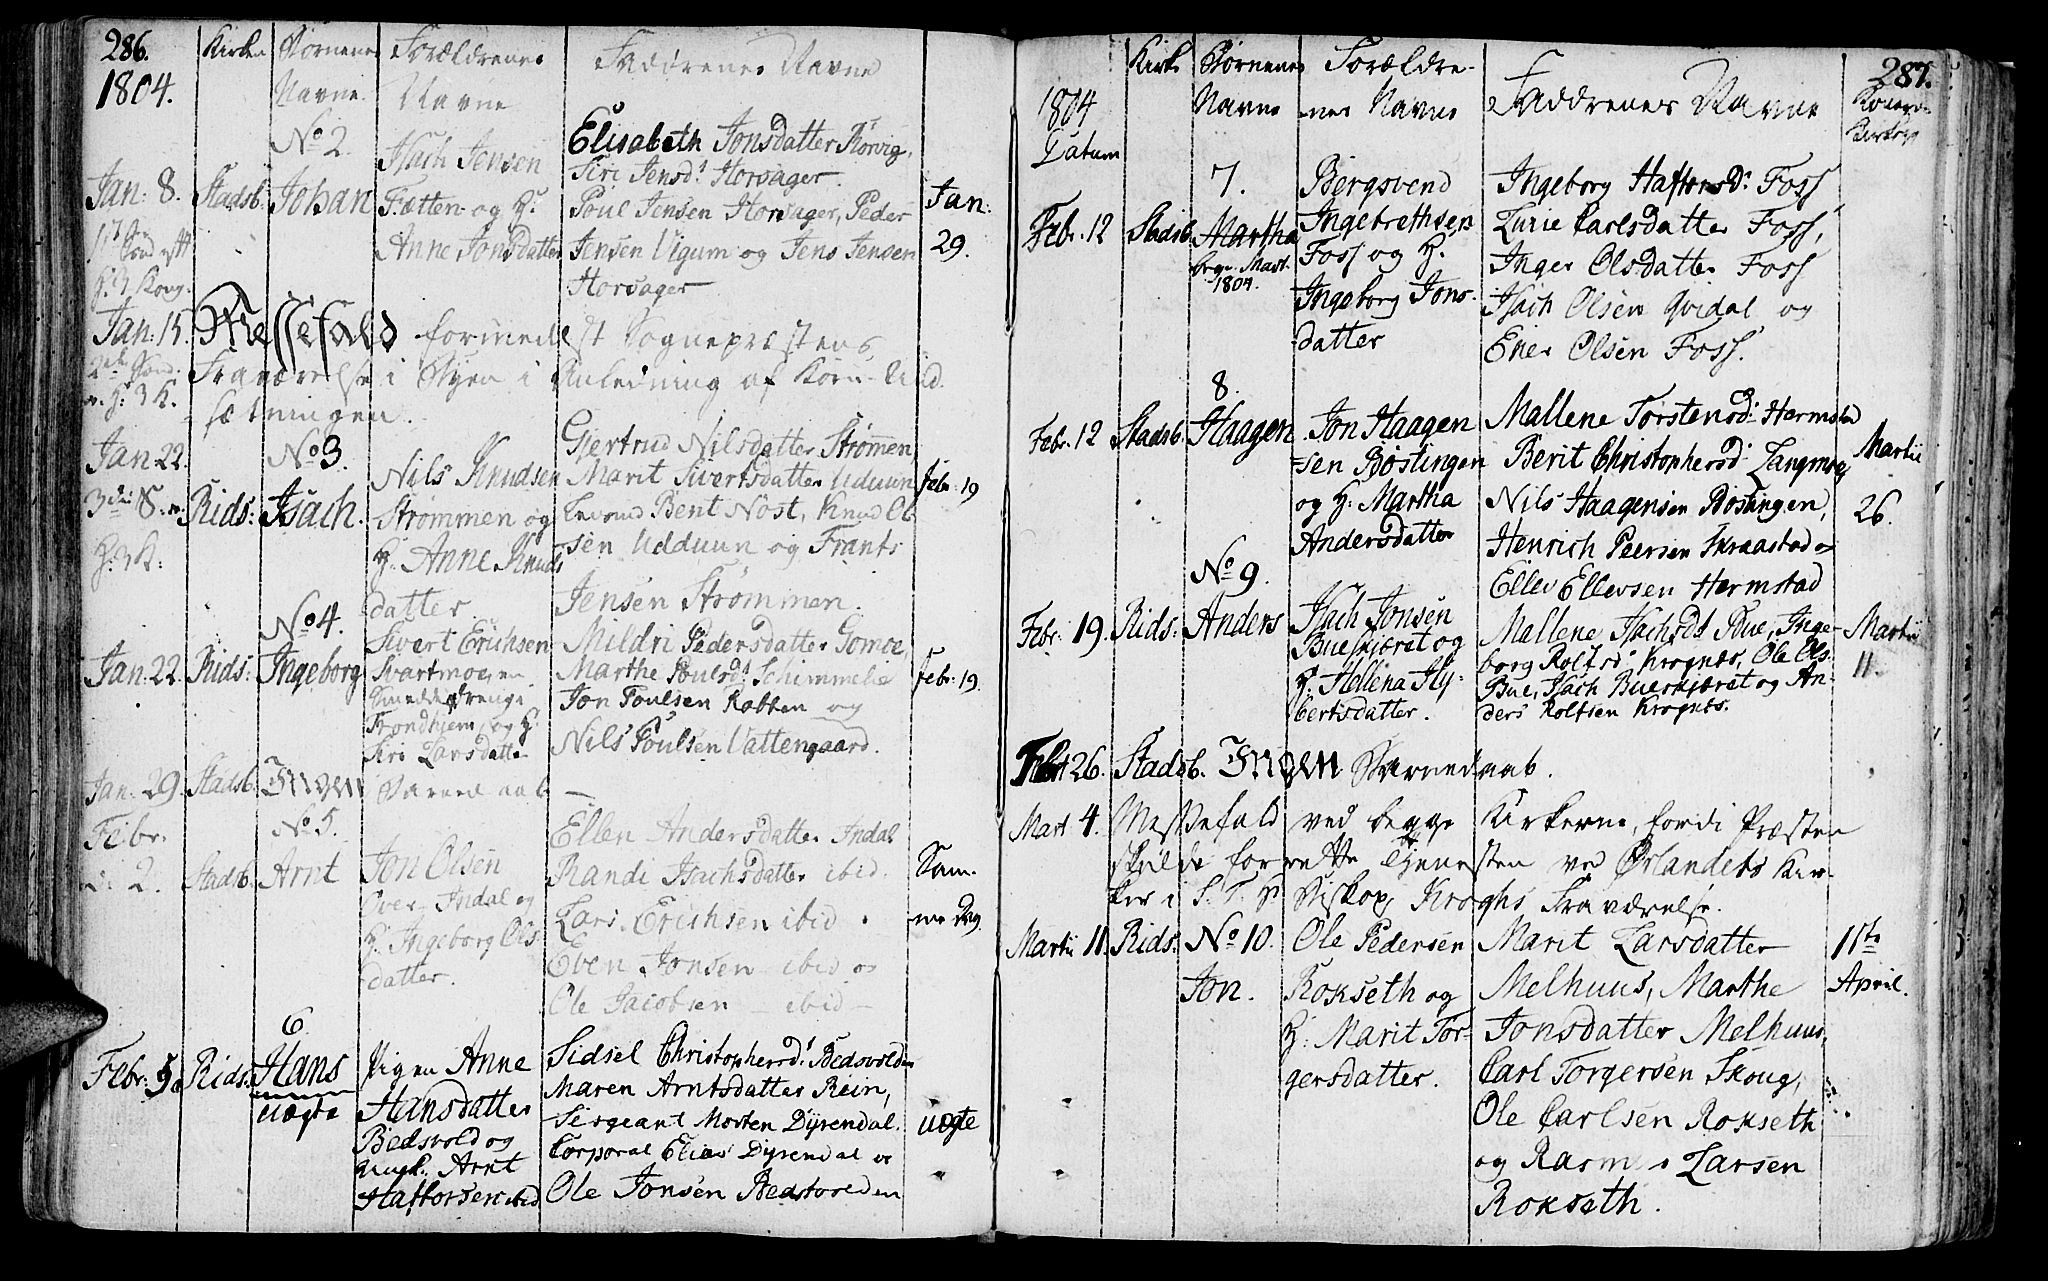 286.
1804.
Kirken
Børnenes Navne.
Forældrenes Navne
Faddrenes Navne
Jan: 8.
17de
Sønd. eft
H. 3 Kong.
Stadsb:
No 2.
Johan
Isach Jensen
Fætten og H.
Anne Jonsdatter
Elisabeth Jonsdatter Rørvig,
Siri Jensd: Horsager.
Poul Jensen Horsager, Peder
Jensen Vigum og Jens Jensen
Horsager
Jan:
29.
Jan: 15.
2den Sønd.
e. H: 3 K.
Messefald formedelst Sognepræstens
Fraværelse i Byen i Anledning af Korn-Ud-
sætningen.
Jan 22.
3die S. e.
H. 3 K:
Rids:
No 3.
Isach.
Nils Knudsen
Strømmen og
H. Anne Knuds
datter
Gjertrud Nilsdatter Strømen,
Marit Sivertsdatter Uduun
Levond Bent Nøst, Knud Ol-
sen Udduun og Frants
Jensen Strømmen.
Febr: 19
Jan: 22
Rids:
No 4.
Ingeborg
Sivert Erichsen
Svartmoe, en
Smeddedreng i
Trondhiem, og H.
Siri Larsdatter
Mildri Pedersdatter Gomoe,
Marthe Poulsd: Schimmelie
Jon Poulsen Rabben og
Nils Poulsen Vattengaard.
Febr: 19.
Jan: 29. Stadsb. Ingen Barnedaab
Febr.
d: 2.
Stadsb:
No 5.
Arnt
Jon Olsen
Over-Indal og
H. Ingeborg Ols
datter.
Ellen Andersdatter Indal
Randi Isachsdatter ibid.
Lars Erichsen ibid.
Even Jonsen ibid og
Ole Jacobsen ibid
Sam-
me Dag.
Febr: 5
Rids:
6.
Hans
uægte
Pigen Anne
Hansdatter
Bedsvold og
Ungk. Arnt
Haftorsen ibid
Sidsel Christophersd: Bedsvolden
Maren Arntsdatter Rein,
Sergeant Morten Dyrendal.
Corporal Elias Dyrendal og
Ole Jonsen Bedsvolden
uægte
287.
1804
Datum
Kirke
Børnenes Navne
Forældre-
nes Navne
Faddrenes Navne
Febr. 12
Stadsb.
7.
Martha
1804.
Bergsvend
Ingebrethsen
Foss og H.
Ingeborg Jons-
datter
Ingeborg Haftorsd: Foss
Lurie Carlsdatter Foss,
Inger Olsdatter Foss
Isach Olsen Qvidal og
Ener Olsen Foss.
Febr. 12
Stadsb.
8.
Haagen
Jon Haagen
sen Bostingen
og H. Martha
Andersdatter
Mallene Torstensd: Hermstad
Berit Christophersd: Langmoe
Nils Haagensen Bostingen,
Henrich Peersen Skraastad og
Ellev Ellevsen Hermstad
Martii
26.
Febr: 19.
Rids:
No 9.
Anders
Isach Jonsen
Bueskjæret og
H. Hellena Hy-
bertsdatter.
Mallene Isachsdt Bue, Inge-
borg Rolfsd: Krognæs, Ole Ols-
Bue, Isach Bueskjæret og An-
ders Rolfsen Krognæs.
Martii
11.
Febr 26. Stadsb. Ingen Barnedaab.
Mart 4. Messefald ved begge Kirkerne, fordi Præsten
skulde forrette Tjenesten ved Ørlandets Kir-
ker i S. T. H Biskop Kroghs Fraværelse.
Martii 11.
Rids:
No 10.
Jon.
Ole Pedersen
Rokseth og
H: Marit Tor-
gersdatter.
Marit Larsdatter
Melhuus, Marthe
Jonsdatter Melhuus,
Carl Torgersen Skoug,
Ole Carlsen Rokseth
og Rasmus Larsen
Rokseth.
11te
April.